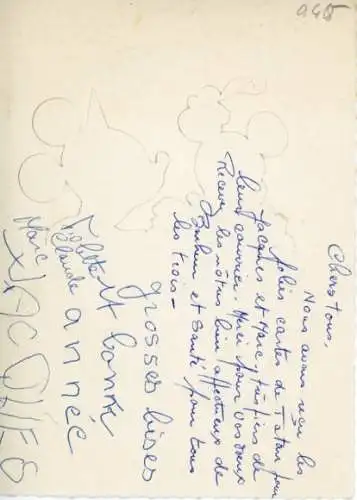 Chers tous,
Nous avons reçu les
jolies cartes de Tatan pour
Jacques et Marc, très fiers de
leur courrier. Merci pour vos voeux
Recevez les nôtres bien affectueux de
Bonheur et Santé pour tous
les trois -
grosses bises
et bonne
année
Colette
Claude
Marc
JACQUES